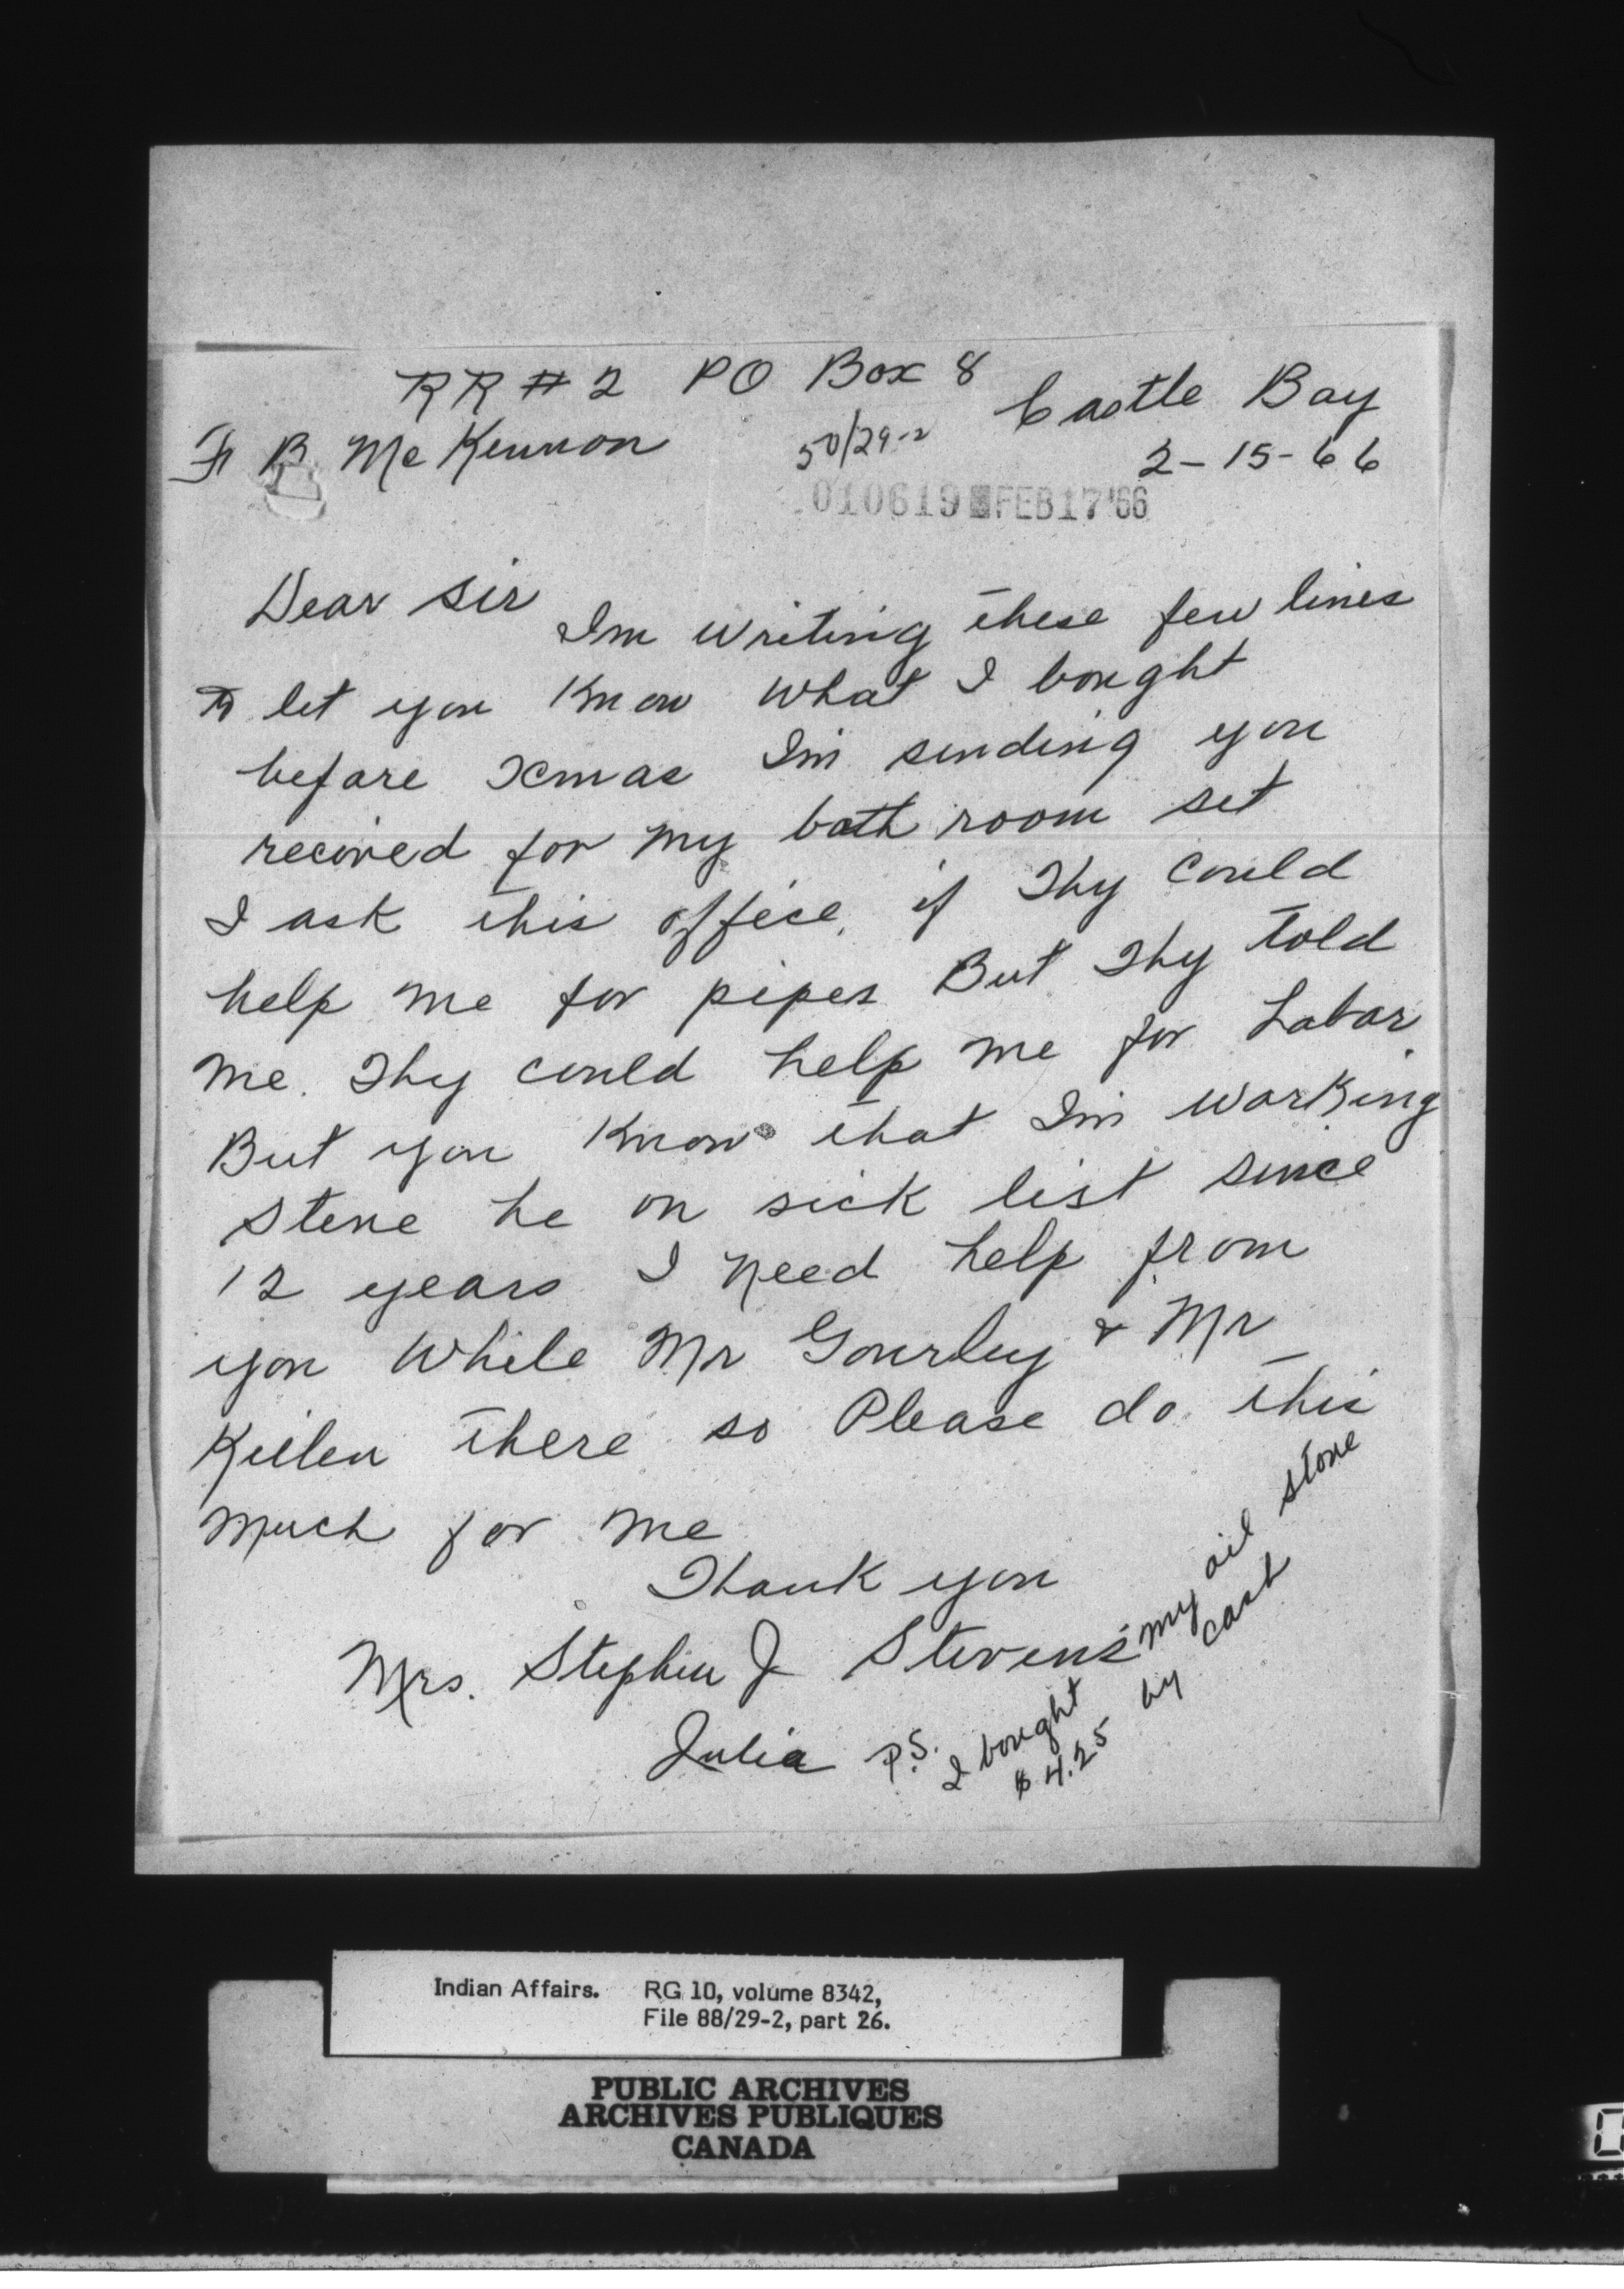 RR # 2 PO Box 8
Castle Bay
F B McKennon
50/29-2
2-15-66
010619 FEB 17 '66
Dear Sir
Im writing these few lines
to let you know what I bought
before Xmas Im sending you
recived for my bath room set
I ask this office, if Thy could
help me for pipes But Thy told
me. Thy could help me for Labor.
But you know that Im working
Steve he on sick list since
12 years I need help from
you while Mr Gourley & Mr
Killen there so Please do this
much for me
Thank you
Mrs. Stephen J Stevens
Julia
P.S.
I bought my oil stove
$4.25 by cash
Indian Affairs. RG 10, volume 8342,
File 88/29-2, part 26.
PUBLIC ARCHIVES
ARCHIVES PUBLIQUES
CANADA